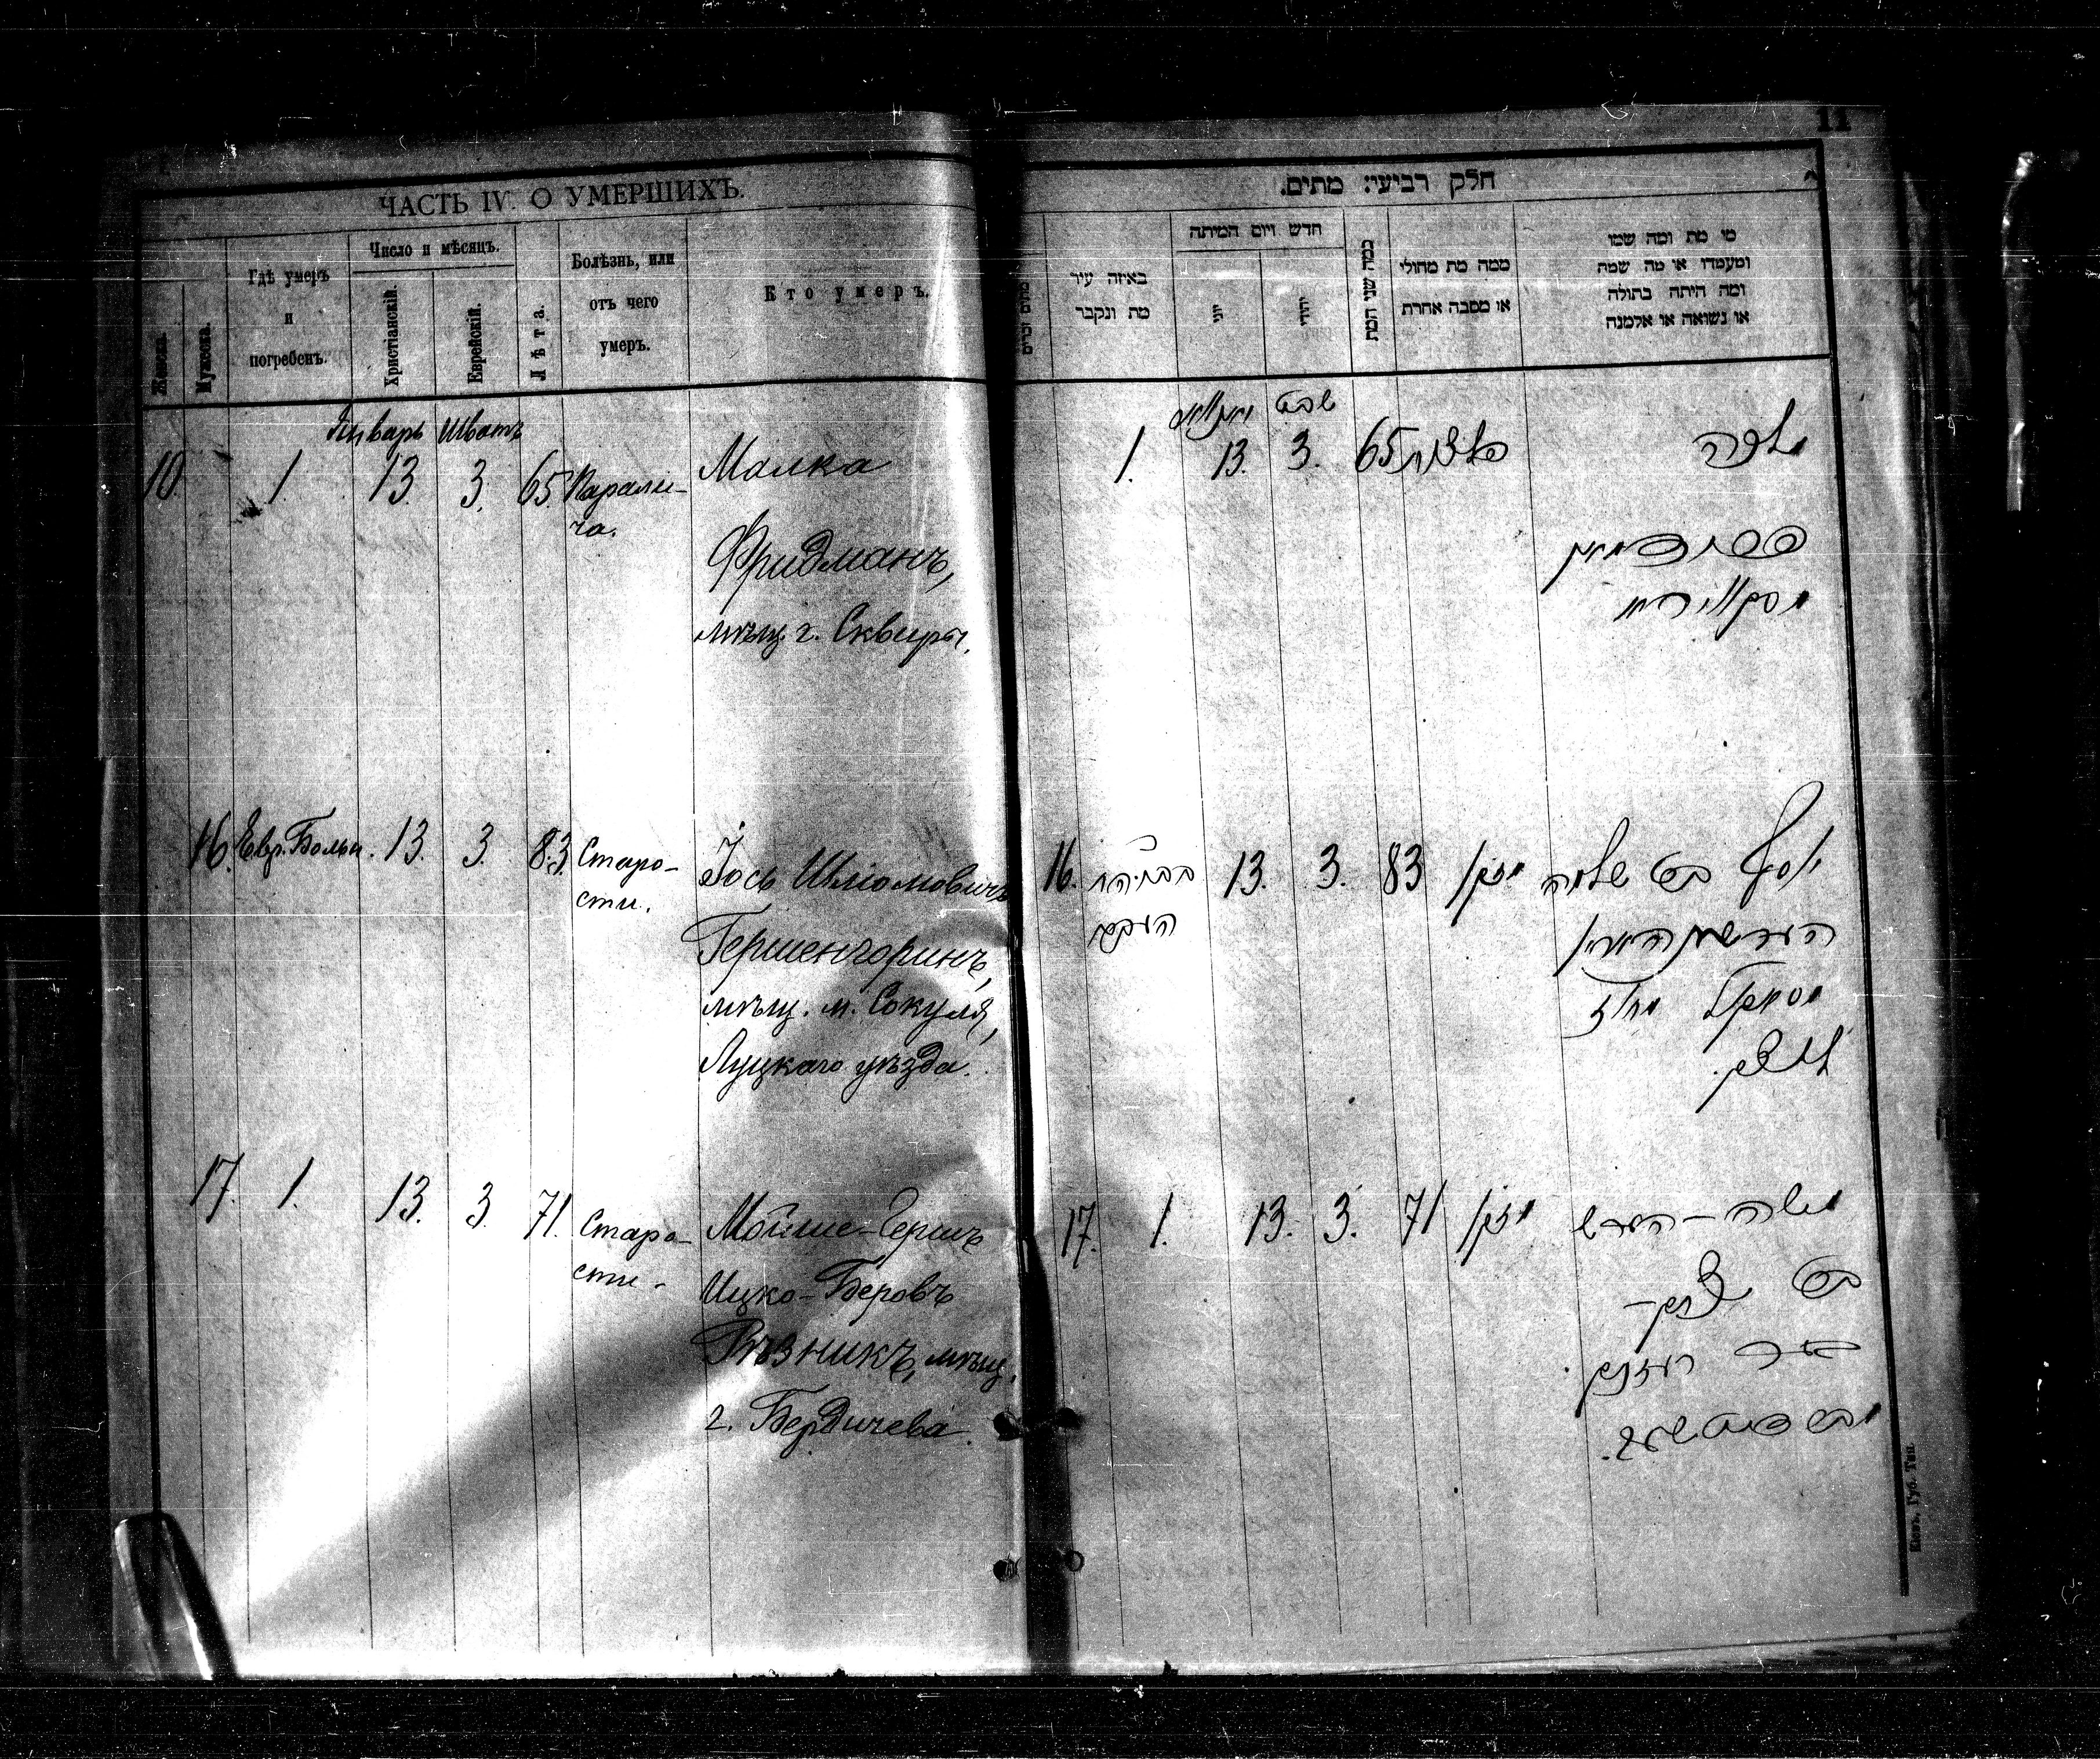 11
ЧАСТЬ IV. О УМЕРШИХЪ.
Женска.
Мужеска.
Гдѣ умеръ
и
погребенъ.
Число и мѣсяцъ.
Христіанскій.
Еврейскій.
Лѣта.
Болѣзнь, или
отъ чего
умеръ.
Кто умеръ.
Январь Шватъ
10. 1. 13. 3. 65. Парали-
ча.
Малка
Фридманъ,
мѣщ. г. Сквиры.
16. Евр. Больн. 13. 3. 83. Старо-
сти.
Іось Шліомовичъ
Гершенгоринъ,
мѣщ. м. Сокуля,
Луцкаго уѣзда.
17. 1. 13. 3. 71. Старо-
сти.
Мойше-Гершъ
Ицко-Беровъ
Рѣзникъ, мѣщ.
г. Бердичева.
חלק רביעי: מתים.
מתים זכרים
באיזה עיר
מת ונקבר
חדש ויום המיתה
יוני
יהודי
כמה שני המת
ממה מת מחולי
או מסבה אחרת
מי מת ומה שמו
ומעמדו או מה שמת
ומה היתה בתולה
או נשואה או אלמנה
שבט
1. 13. 3. 65
מלכה
16. 13. 3. 83 מזקן
יוסף בן שלמה
17. 1. 13. 3. 71 מזקן
משה - הערש
בן
Кіевъ, Губ. Тип.